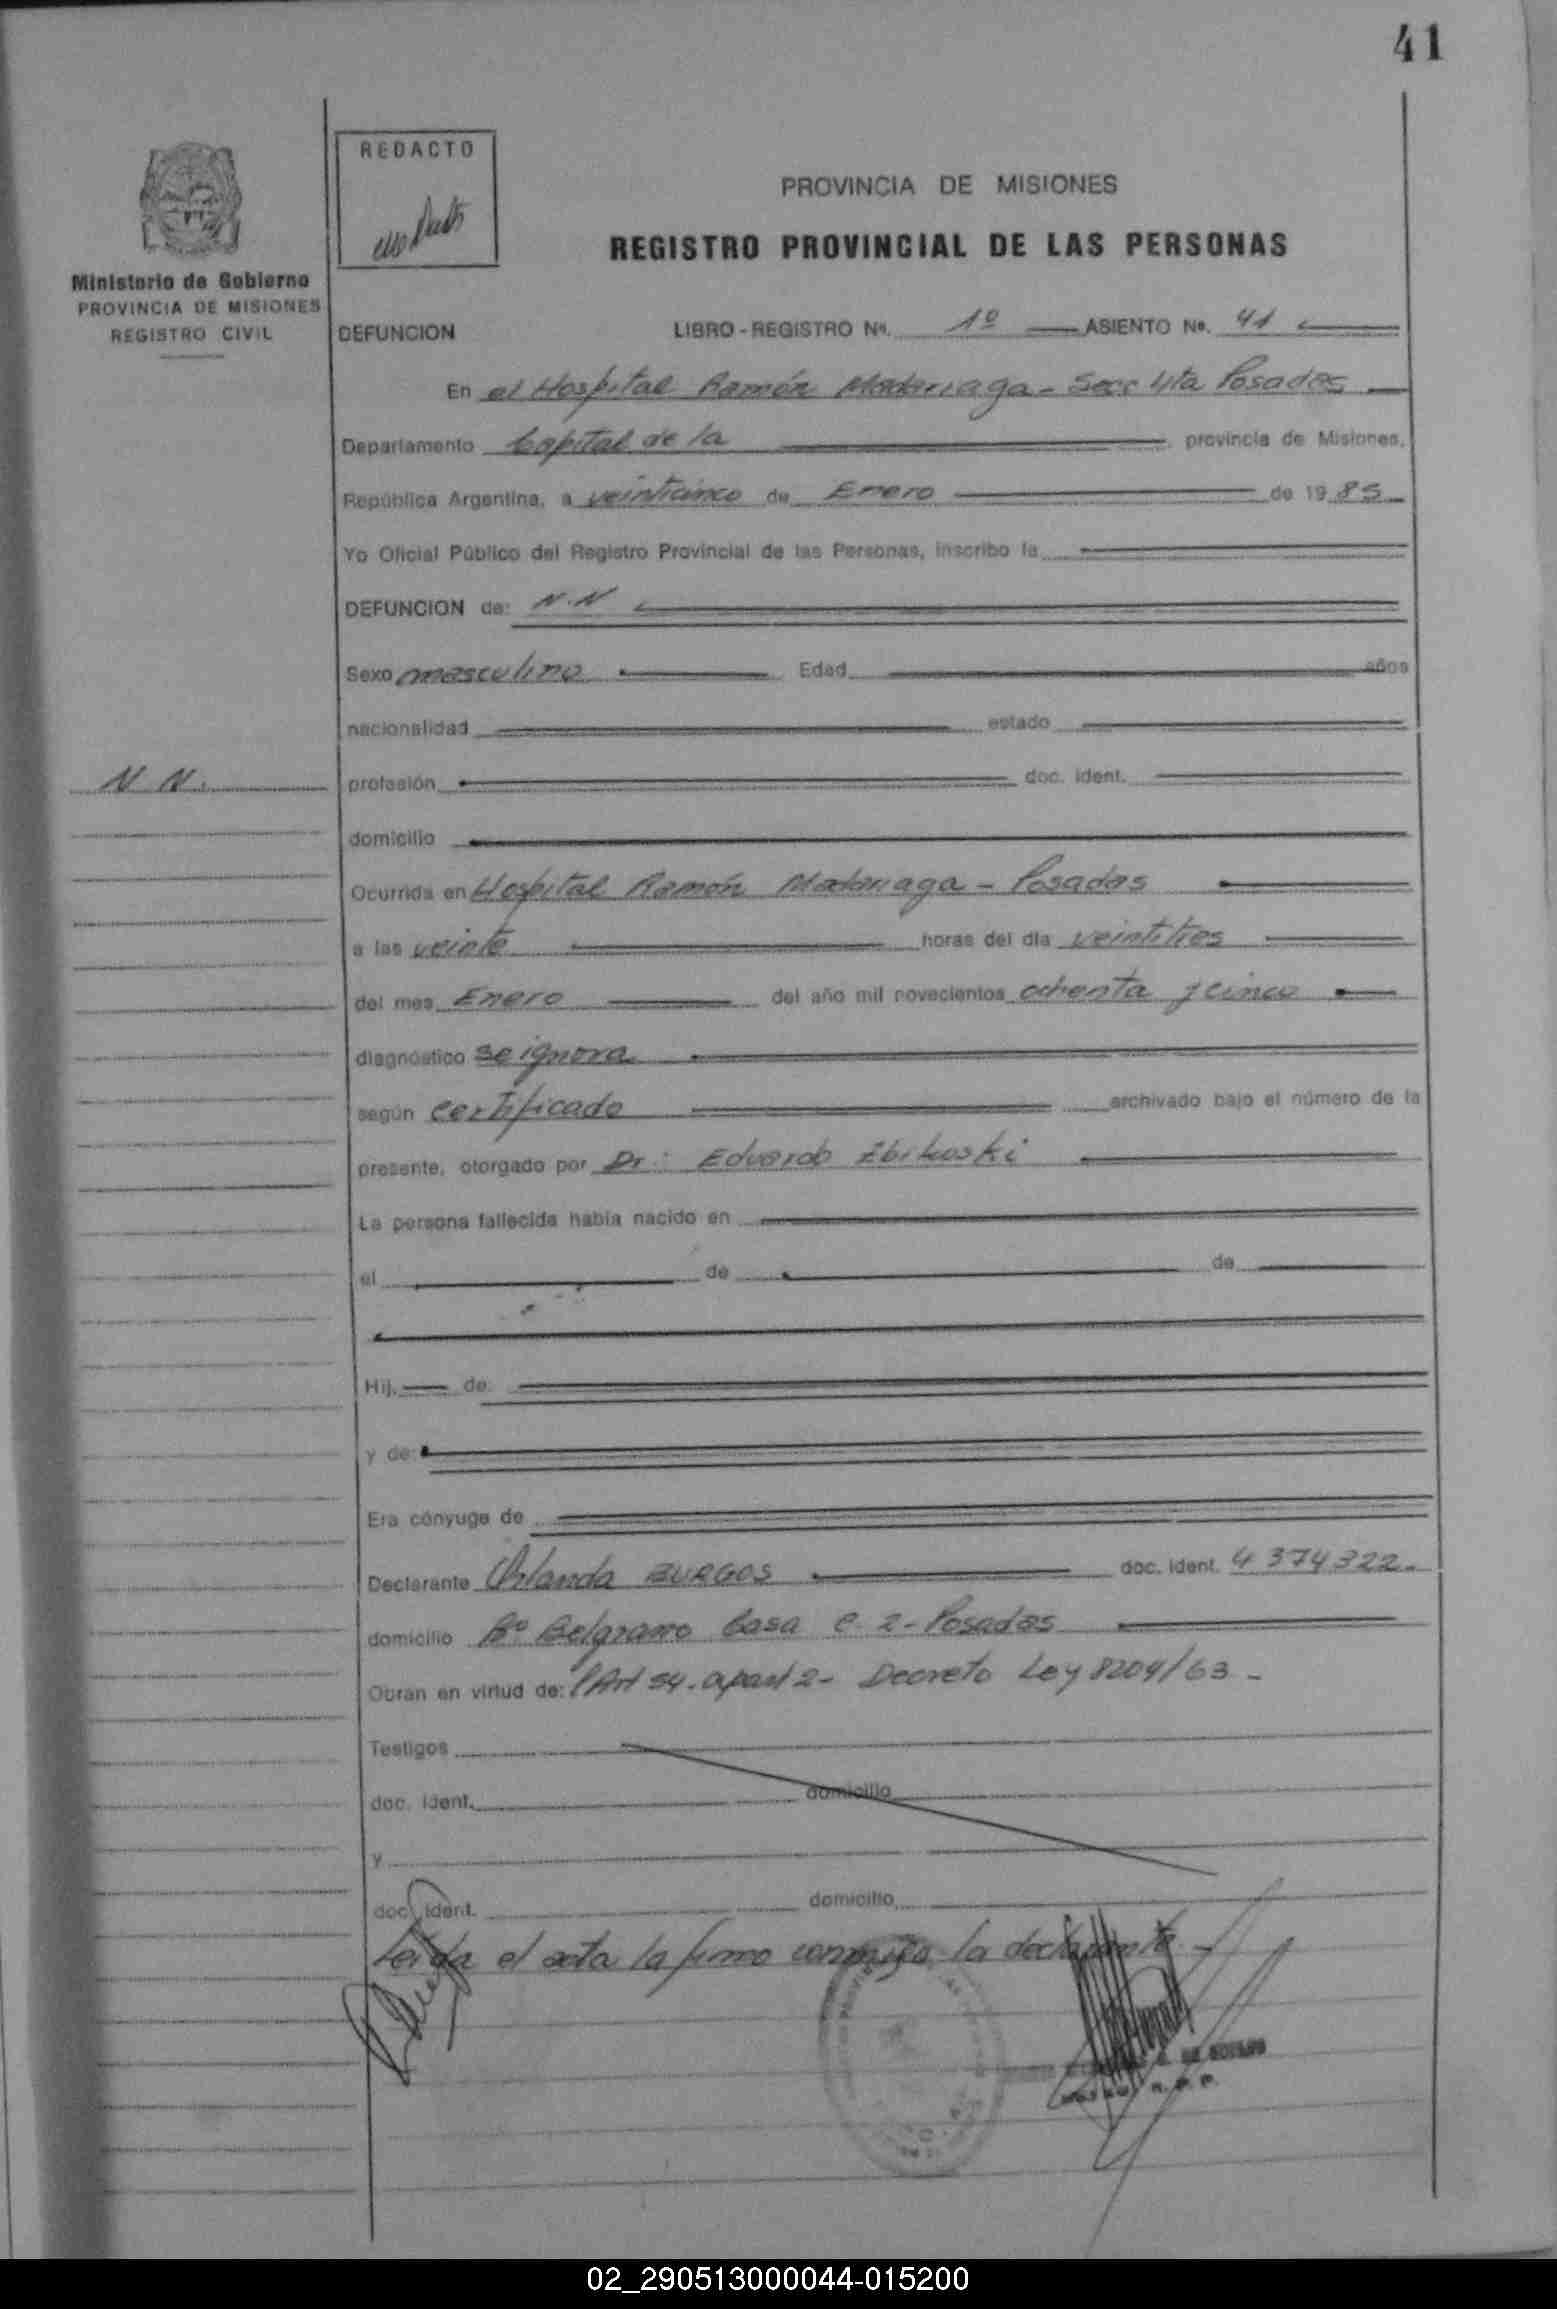 41
REDACTO
PROVINCIA DE MISIONES
REGISTRO PROVINCIAL DE LAS PERSONAS
Ministerio de Gobierno
PROVINCIA DE MISIONES
REGISTRO CIVIL
DEFUNCION LIBRO-REGISTRO Nº. 1º ASIENTO Nº. 41
En el Hospital Ramón Madariaga - Secc 4ta Posadas
Departamento Capital de la provincia de Misiones,
República Argentina, a veinticinco de Enero de 1985
Yo Oficial Público del Registro Provincial de las Personas, inscribo la
DEFUNCION de: N.N
Sexo masculino Edad años
nacionalidad estado
N N.
profesión doc. ident.
domicilio
Ocurrida en Hospital Ramón Madariaga - Posadas
a las veinte horas del día veintitres
del mes Enero del año mil novecientos ochenta y cinco
diagnóstico se ignora
según certificado archivado bajo el número de la
presente, otorgado por Dr: Eduardo Zbikoski
La persona fallecida había nacido en
el de de
Hij. de:
y de:
Era cónyuge de
Declarante Orlanda BURGOS doc. ident. 4374322.
domicilio Bº Belgrano Casa C. 2- Posadas
Obran en virtud de: l'Art 54. apart 2- Decreto Ley 8204/63 -
Testigos
doc. ident. domicilio
y
doc. ident. domicilio
Leída el acta la firma conmigo la declarante -
02_290513000044-015200